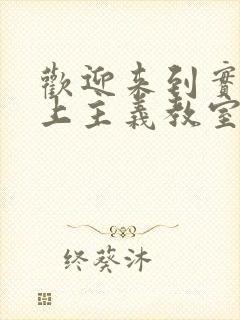 歡迎来到實
上主義教室
终葵沐